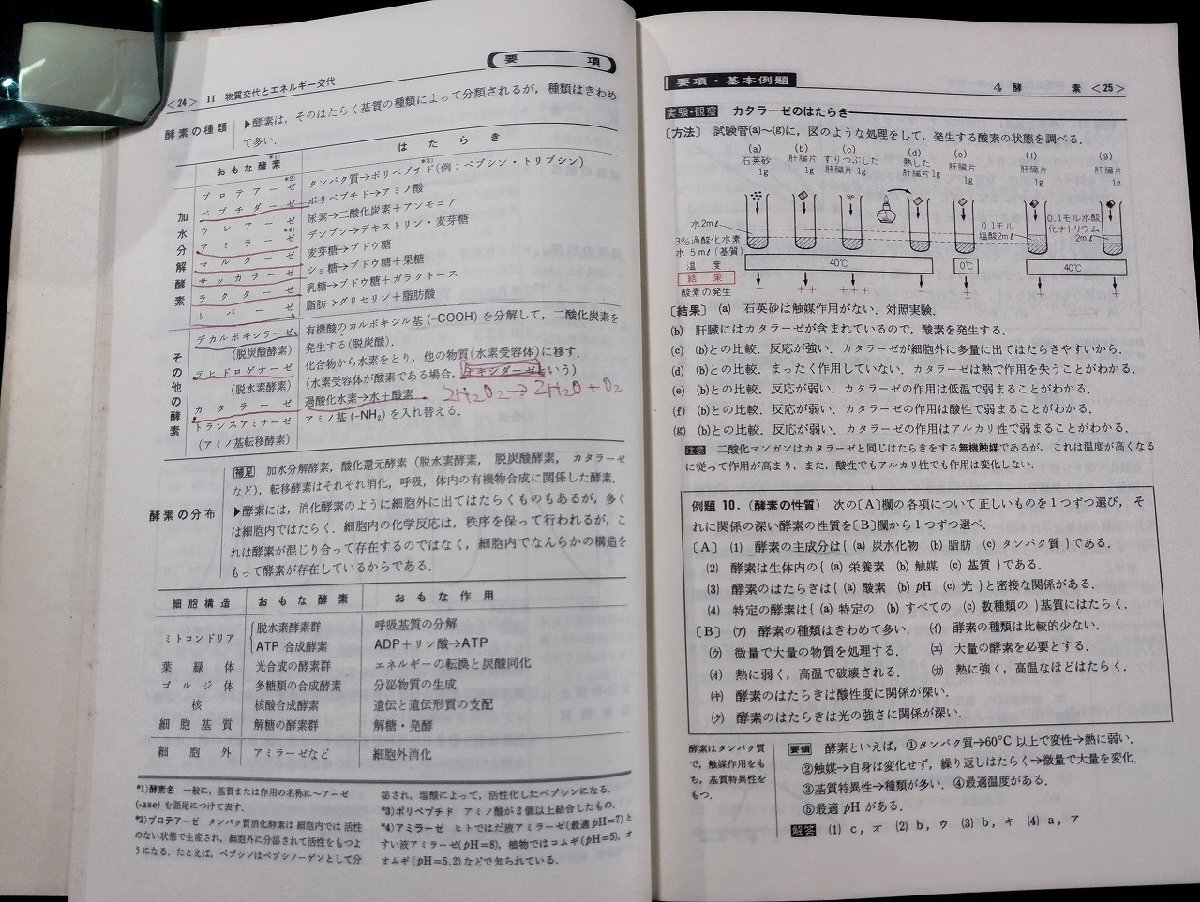 要項
<24> 11 物質交代とエネルギー交代
酵素の種類
▶酵素は，そのはたらく基質の種類によって分類されるが，種類はきわめ
て多い．
おもな酵素*1)
はたらき
加水分解酵素
プロテアーゼ*2) タンパク質→ポリペプチド*3)(例：ペプシン・トリプシン)
ペプチダーゼ ポリペプチド→アミノ酸
ウレアーゼ 尿素→二酸化炭素＋アンモニア
アミラーゼ*4) デンプン→デキストリン・麦芽糖
マルターゼ 麦芽糖→ブドウ糖
サッカラーゼ ショ糖→ブドウ糖＋果糖
ラクターゼ 乳糖→ブドウ糖＋ガラクトース
リパーゼ 脂肪→グリセリン＋脂肪酸
その他の酵素
デカルボキシラーゼ 有機酸のカルボキシル基(-COOH)を分解して，二酸化炭素を
(脱炭酸酵素) 発生する(脱炭酸)．
デヒドロゲナーゼ 化合物から水素をとり，他の物質(水素受容体)に移す．
(脱水素酵素) (水素受容体が酸素である場合，オキシダーゼという)
カタラーゼ 過酸化水素→水＋酸素． 2H₂O₂→2H₂O+O₂
トランスアミナーゼ アミノ基(-NH₂)を入れ替える．
(アミノ基転移酵素)
補足 加水分解酵素，酸化還元酵素(脱水素酵素，脱炭酸酵素，カタラーゼ
など)，転移酵素はそれぞれ消化，呼吸，体内の有機物合成に関係した酵素．
酵素の分布
▶酵素には，消化酵素のように細胞外に出てはたらくものもあるが，多く
は細胞内ではたらく．細胞内の化学反応は，秩序を保って行われるが，こ
れは酵素が混じり合って存在するのではなく，細胞内でなんらかの構造を
もって酵素が存在しているからである．
細胞構造 おもな酵素 おもな作用
ミトコンドリア 脱水素酵素群 呼吸基質の分解
ATP合成酵素 ADP＋リン酸→ATP
葉緑体 光合成の酵素群 エネルギーの転換と炭酸同化
ゴルジ体 多糖類の合成酵素 分泌物質の生成
核 核酸合成酵素 遺伝と遺伝形質の支配
細胞基質 解糖の酵素群 解糖・発酵
細胞外 アミラーゼなど 細胞外消化
*1)酵素名 一般に，基質または作用の名称に〜アーゼ
(-ase)を語尾につけて表す．
*2)プロテアーゼ タンパク質消化酵素は細胞内では活性
のない状態で生産され，細胞外に分泌されて活性をもつよ
うになる．たとえば，ペプシンはペプシノーゲンとして分
泌され，塩酸によって，活性化したペプシンになる．
*3)ポリペプチド アミノ酸が2個以上結合したもの．
*4)アミラーゼ ヒトではだ液アミラーゼ(最適pH=7)と
すい液アミラーゼ(pH=8)，植物ではコムギ(pH=5)，オ
オムギ(pH=5.2)などで知られている．
要項・基本例題
4 酵素 <25>
実験・観察 カタラーゼのはたらき
〔方法〕 試験管(a)〜(g)に，図のような処理をして，発生する酸素の状態を調べる．
(a) (b) (c) (d) (e) (f) (g)
石英砂 肝臓片 すりつぶした 熱した 肝臓片 肝臓片 肝臓片
1g 1g 肝臓片1g 肝臓片1g 1g 1g 1g
水2ml
0.1モル
塩酸2ml
0.1モル水酸
化ナトリウム
2ml
3%過酸化水素
水5ml(基質)
温度 40℃ 0℃ 40℃
結果
酸素の発生 − ++ +++ − ± ± ±
〔結果〕 (a) 石英砂に触媒作用がない．対照実験．
(b) 肝臓にはカタラーゼが含まれているので，酸素を発生する．
(c) (b)との比較．反応が強い．カタラーゼが細胞外に多量に出てはたらきやすいから．
(d) (b)との比較．まったく作用していない．カタラーゼは熱で作用を失うことがわかる．
(e) (b)との比較．反応が弱い．カタラーゼの作用は低温で弱まることがわかる．
(f) (b)との比較．反応が弱い．カタラーゼの作用は酸性で弱まることがわかる．
(g) (b)との比較．反応が弱い．カタラーゼの作用はアルカリ性で弱まることがわかる．
注意 二酸化マンガンはカタラーゼと同じはたらきをする無機触媒であるが，これは温度が高くなる
に従って作用が高まり，また，酸性でもアルカリ性でも作用は変化しない．
例題 10．(酵素の性質) 次の〔A〕欄の各項について正しいものを1つずつ選び，そ
れに関係の深い酵素の性質を〔B〕欄から1つずつ選べ．
〔A〕 (1) 酵素の主成分は{(a) 炭水化物 (b) 脂肪 (c) タンパク質}である．
(2) 酵素は生体内の{(a) 栄養素 (b) 触媒 (c) 基質}である．
(3) 酵素のはたらきは{(a) 酸素 (b) pH (c) 光}と密接な関係がある．
(4) 特定の酵素は{(a) 特定の (b) すべての (c) 数種類の}基質にはたらく．
〔B〕 (ア) 酵素の種類はきわめて多い． (イ) 酵素の種類は比較的少ない．
(ウ) 微量で大量の物質を処理する． (エ) 大量の酵素を必要とする．
(オ) 熱に弱く，高温で破壊される． (カ) 熱に強く，高温なほどはたらく．
(キ) 酵素のはたらきは酸性度に関係が深い．
(ク) 酵素のはたらきは光の強さに関係が深い．
酵素はタンパク質
で，触媒作用をも
ち，基質特異性を
もつ．
要領 酵素といえば，①タンパク質→60°C以上で変性→熱に弱い．
②触媒→自身は変化せず，繰り返しはたらく→微量で大量を変化．
③基質特異性→種類が多い．④最適温度がある．
⑤最適pHがある．
解答 (1) c，オ (2) b，ウ (3) b，キ (4) a，ア